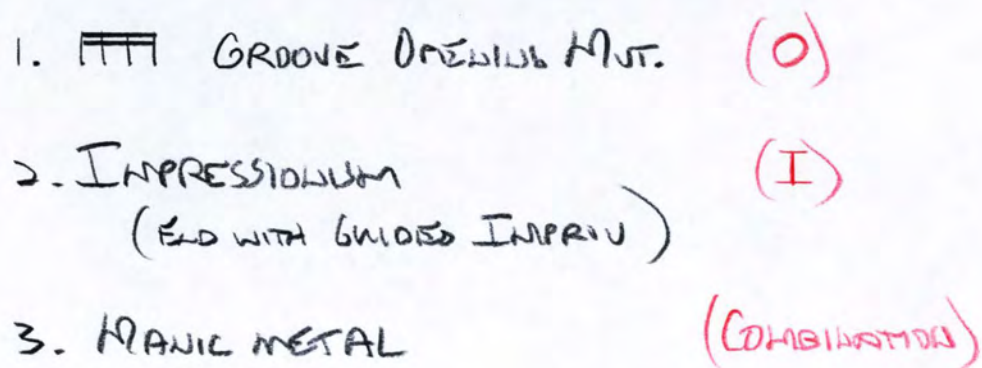 1. GROOVE OPENING MVT. (O)
2. IMPRESSIONISM (I)
(END WITH GUIDED IMPROV)
3. MANIC METAL (COMBINATION)